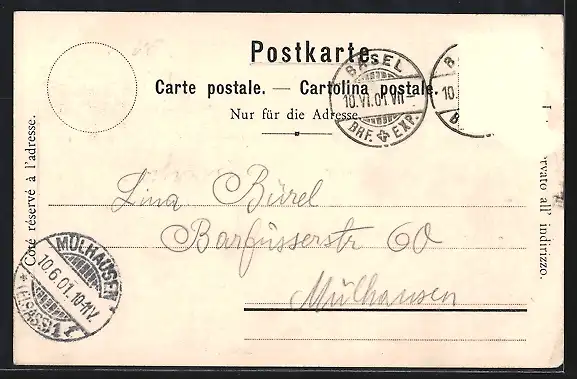 Postkarte.
Carte postale. — Cartolina postale.
Nur für die Adresse.
BASEL
10.VI.01.VII—
BRF. EXP.
B
10.
B
Côté réservé à l'adresse.
ervato all' indirizzo.
Lina Bürel
Barfüsserstr 60
Mülhausen
MÜLHAUSEN
10.6.01.10-11V.
* (ELSASS) 1 *